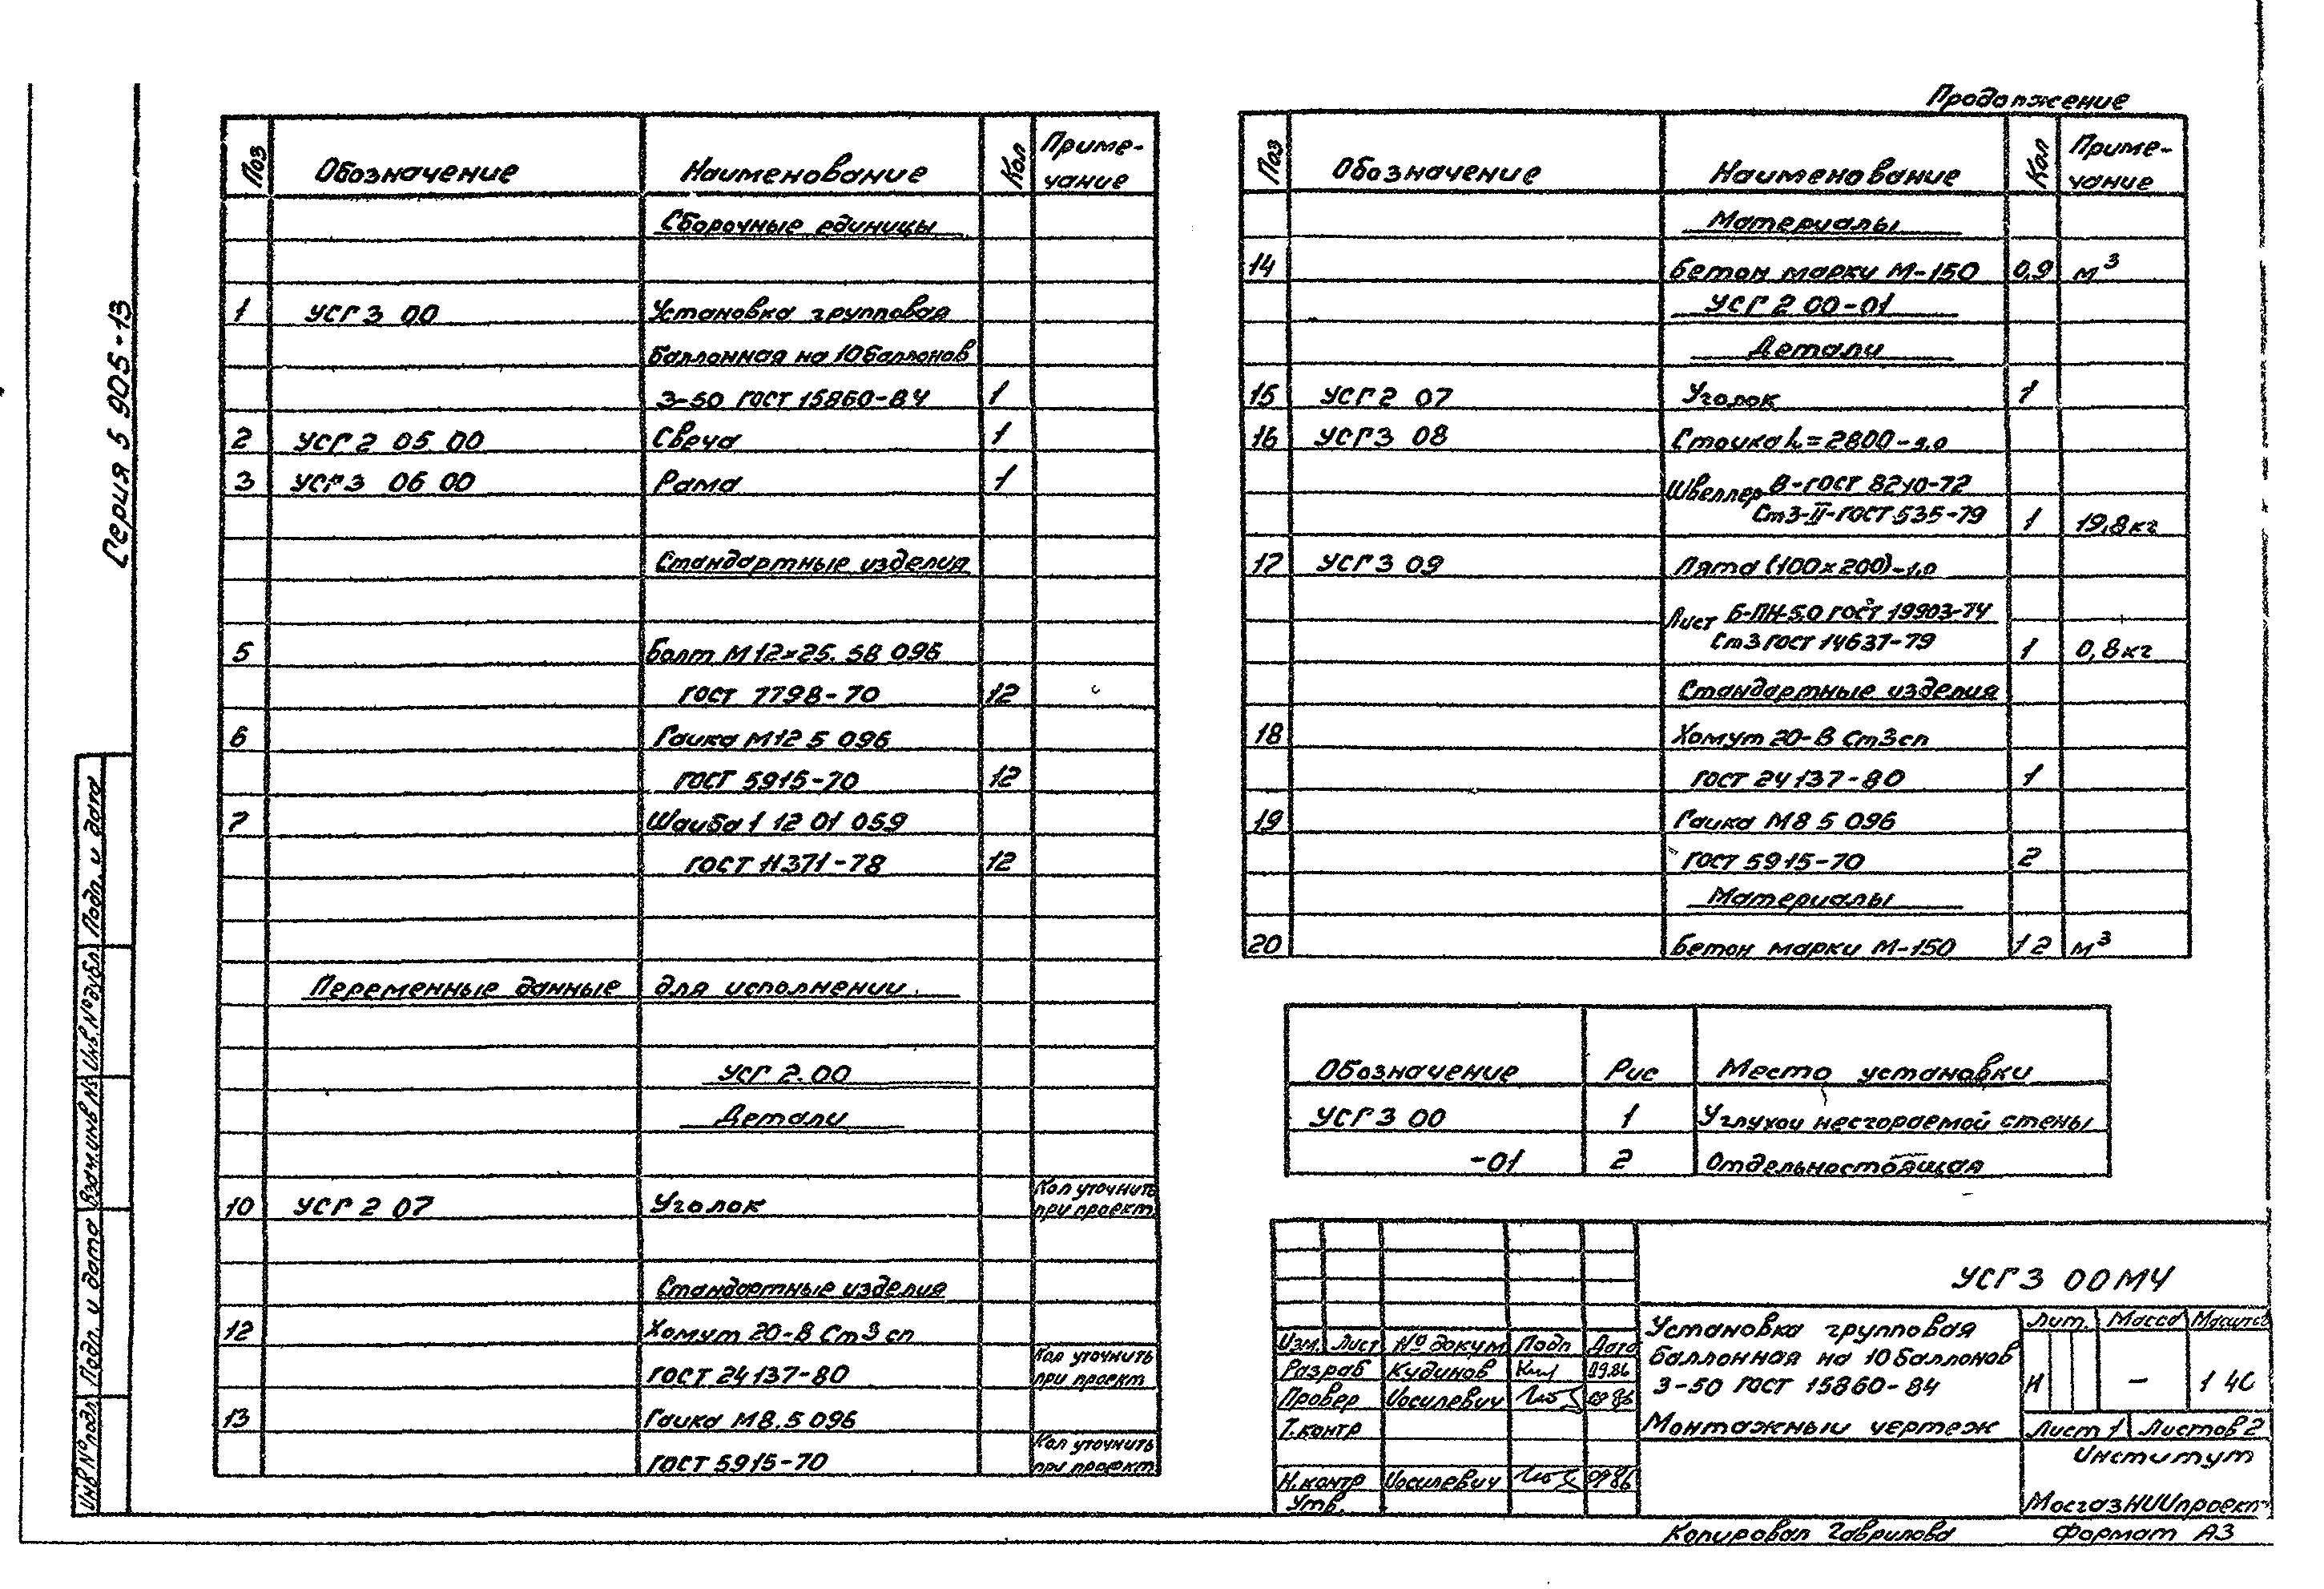 Серия 5 905-13
Поз Обозначение Наименование Кол Приме-
чание
Сборочные единицы
1 УСГ 3 00 Установка групповая
баллонная на 10 баллонов
3-50 ГОСТ 15860-84 1
2 УСГ 2 05 00 Свеча 1
3 УСГ 3 06 00 Рама 1
Стандартные изделия
5 Болт М12×25. 58 096
ГОСТ 7798-70 12
6 Гаика М12 5 096
ГОСТ 5915-70 12
7 Шаиба 1 12 01 059
ГОСТ 11371-78 12
Переменные данные для исполнении
УСГ 2.00
Детали
10 УСГ 2 07 Уголок Кол уточнить
при проект.
Стандартные изделия
12 Хомут 20-В Ст3 сп
ГОСТ 24137-80 Кол уточнить
при проект
13 Гаика М8.5 096
ГОСТ 5915-70 Кол уточнить
при проект
Продолжение
Поз Обозначение Наименование Кол Приме-
чание
Материалы
14 Бетон марки М-150 0,9 м³
УСГ 2 00-01
Детали
15 УСГ 2 07 Уголок 1
16 УСГ 3 08 Стоика h=2800-
Швеллер 8-ГОСТ 8240-72
Ст3-II-ГОСТ 535-79 1 19,8кг
17 УСГ 3 09 Пята (100×200)-1,0
Лист Б-ПН-5,0 ГОСТ 19903-74
Ст3 ГОСТ 14637-79 1 0,8кг
Стандартные изделия
18 Хомут 20-В Ст3сп
ГОСТ 24137-80 1
19 Гаика М8 5 096
ГОСТ 5915-70 2
Материалы
20 Бетон марки М-150 1 2 м³
Обозначение Рис Место установки
УСГ 3 00 1 У глухои несгораемой стены
-01 2 Отдельностоящая
УСГ 3 00МЧ
Установка групповая
баллонная на 10 баллонов
3-50 ГОСТ 15860-84
Монтажныи чертеж
Лит. Масса Масштаб
И - 1 40
Лист 1 Листов 2
Институт
МосгазНИИпроект
Изм. Лист № докум Подп Дата
Разраб Кудинов 09.86
Провер Иосилевич 09 86
Т.контр
Н.контр Иосилевич 09 86
Утв.
Копировал Гаврилова Формат А3
Инв № подл. Подп. и дата Взам инв № Инв. № дубл. Подп. и дата